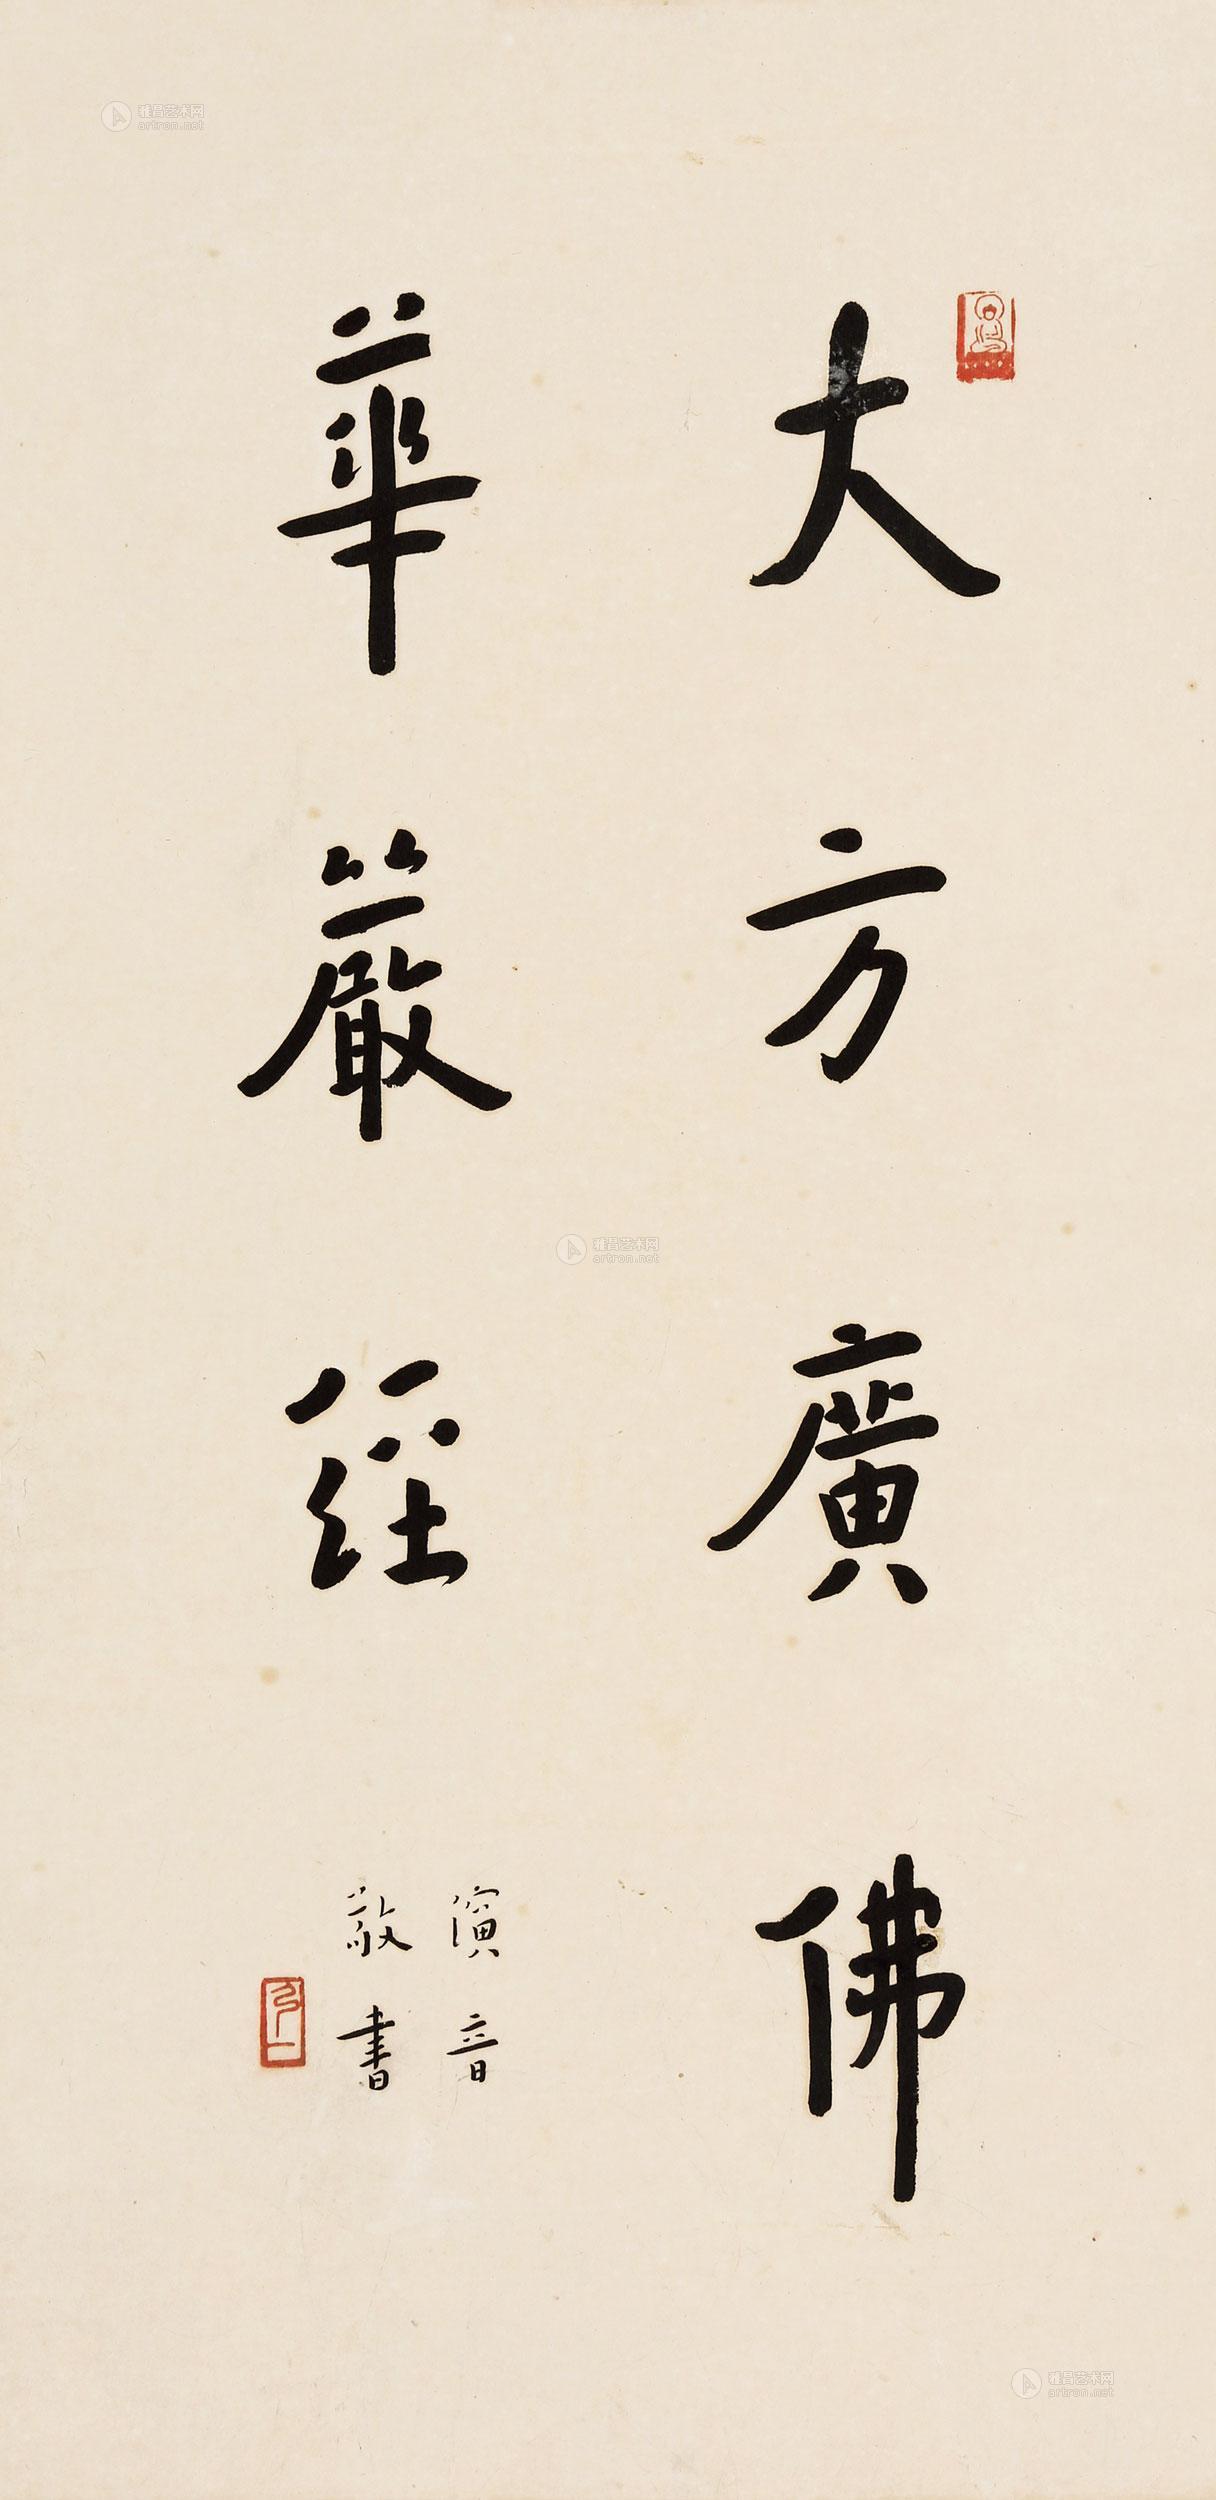 大方廣佛
華嚴經
演音
敬書
弘一
雅昌艺术网
artron.net
雅昌艺术网
artron.net
雅昌艺术网
artron.net